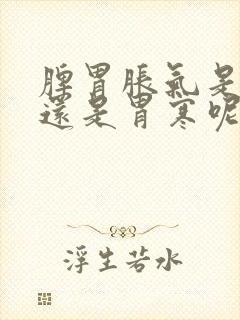 脾胃脹氣是
還是胃寒呢
浮生若水